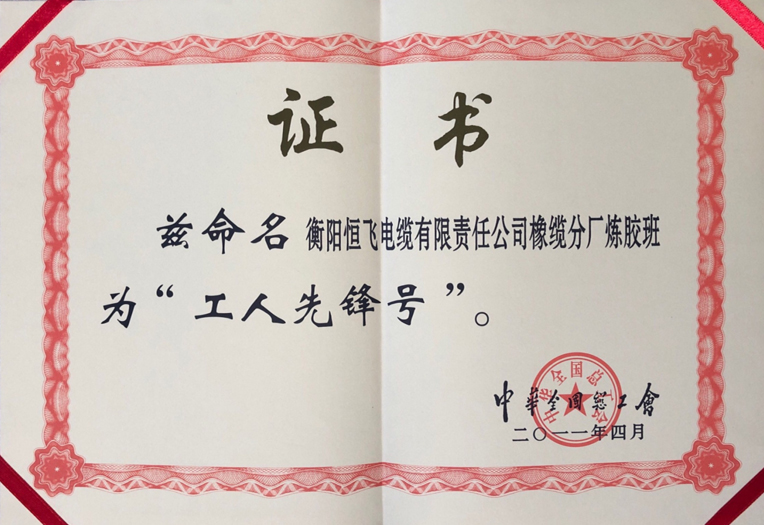 证书
兹命名 衡阳恒飞电缆有限责任公司橡缆分厂炼胶班
为“工人先锋号”。
中华全国总工会
中華全國總工會
二〇一一年四月